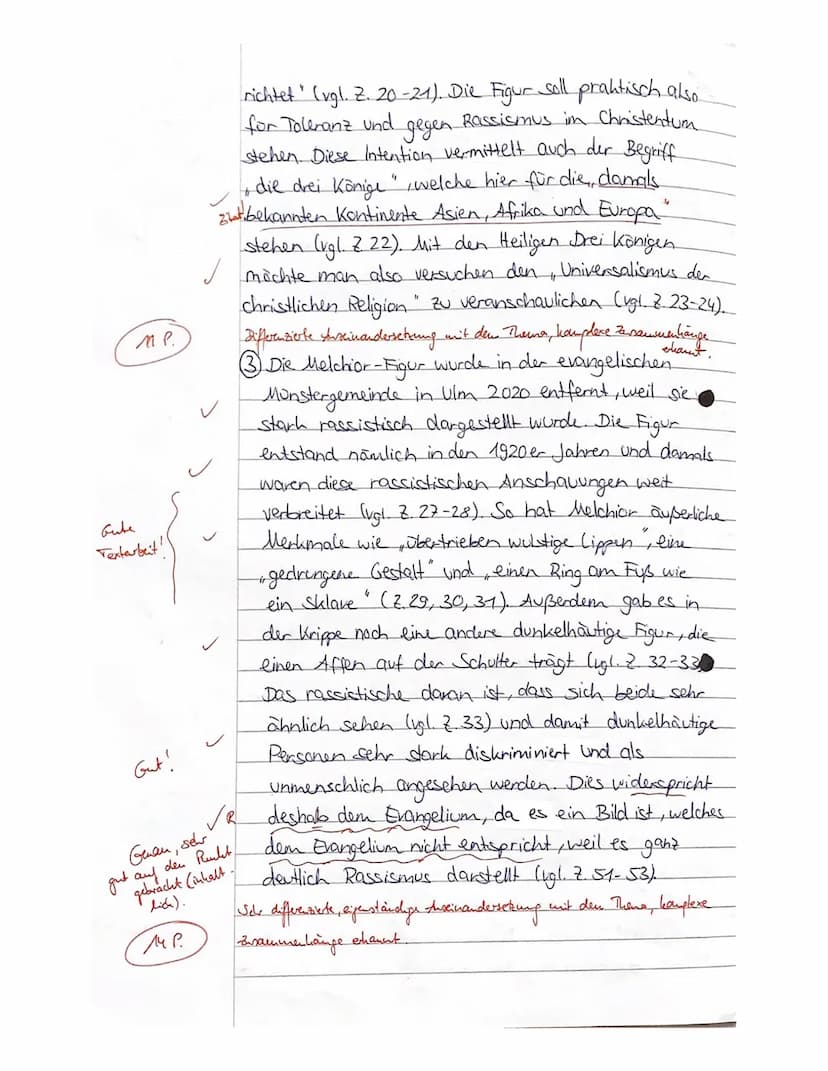 richtet' (vgl. Z. 20-21). Die Figur soll praktisch also
for Toleranz und gegen Rassismus im Christentum
stehen. Diese Intention vermittelt auch der Begriff
„die drei Könige", welche hier für die „damals
Zitat bekannten Kontinente Asien, Afrika und Europa"
stehen (vgl. Z. 22). Mit den Heiligen Drei Königen
möchte man also versuchen den „Universalismus der
christlichen Religion" zu veranschaulichen (vgl. Z. 23-24).
11 P.
Differenzierte Auseinandersetzung mit dem Thema, komplexe Zusammenhänge
erkannt.
③ Die Melchior-Figur wurde in der evangelischen
Münstergemeinde in Ulm 2020 entfernt, weil sie
stark rassistisch dargestellt wurde. Die Figur
entstand nämlich in den 1920er Jahren und damals
waren diese rassistischen Anschauungen weit
verbreitet (vgl. Z. 27-28). So hat Melchior äußerliche
Gute
Textarbeit!
Merkmale wie „übertrieben wulstige Lippen", eine
„gedrengene Gestalt" und „einen Ring am Fuß wie
ein Sklave" (Z. 29, 30, 31). Außerdem gab es in
der Krippe noch eine andere dunkelhäutige Figur, die
einen Affen auf der Schulter trägt (vgl. Z. 32-33
Das rassistische daran ist, dass sich beide sehr
ähnlich sehen (vgl. Z. 33) und damit dunkelhäutige
Gut!
Personen sehr stark diskriminiert und als
unmenschlich angesehen werden. Dies widerspricht
R
deshalb dem Evangelium, da es ein Bild ist, welches
Genau, sehr
gut auf den Punkt
gebracht (inhalt-
lich).
dem Evangelium nicht entspricht, weil es ganz
deutlich Rassismus darstellt (vgl. Z. 51-53).
Sehr differenzierte, eigenständige Auseinandersetzung mit dem Thema, komplexe
14 P.
Zusammenhänge erkannt.